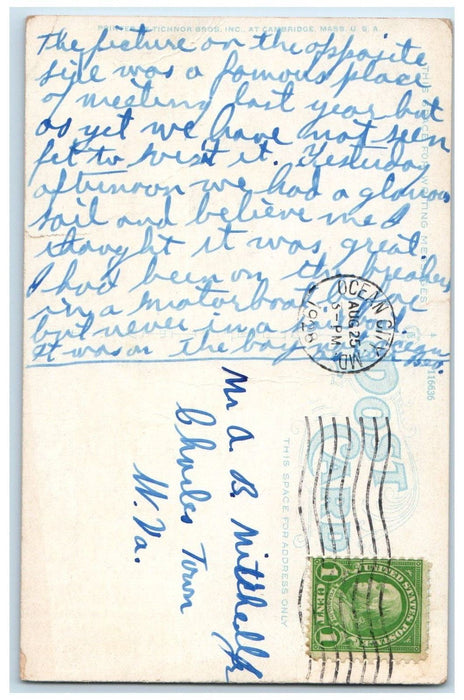 PRINTED BY TICHNOR BROS. INC., AT CAMBRIDGE, MASS. U. S. A.
The picture on the opposite
side was a famous place
of meeting last year but
as yet we have not seen
fit to visit it. Yesterday
afternoon we had a glorious
sail and believe me I
thought it was great.
I had been on the breakers
in a motorboat before
but never in a
It was on the bay
THIS SPACE FOR WRITING MESSAGES
OCEAN CITY
AUG 25
3-PM
1928
MD
116636
POST
CARD
THIS SPACE FOR ADDRESS ONLY
Mr A. B. Mitchell Jr
Charles Town
W. Va.
UNITED STATES POSTAGE
1 CENT 1